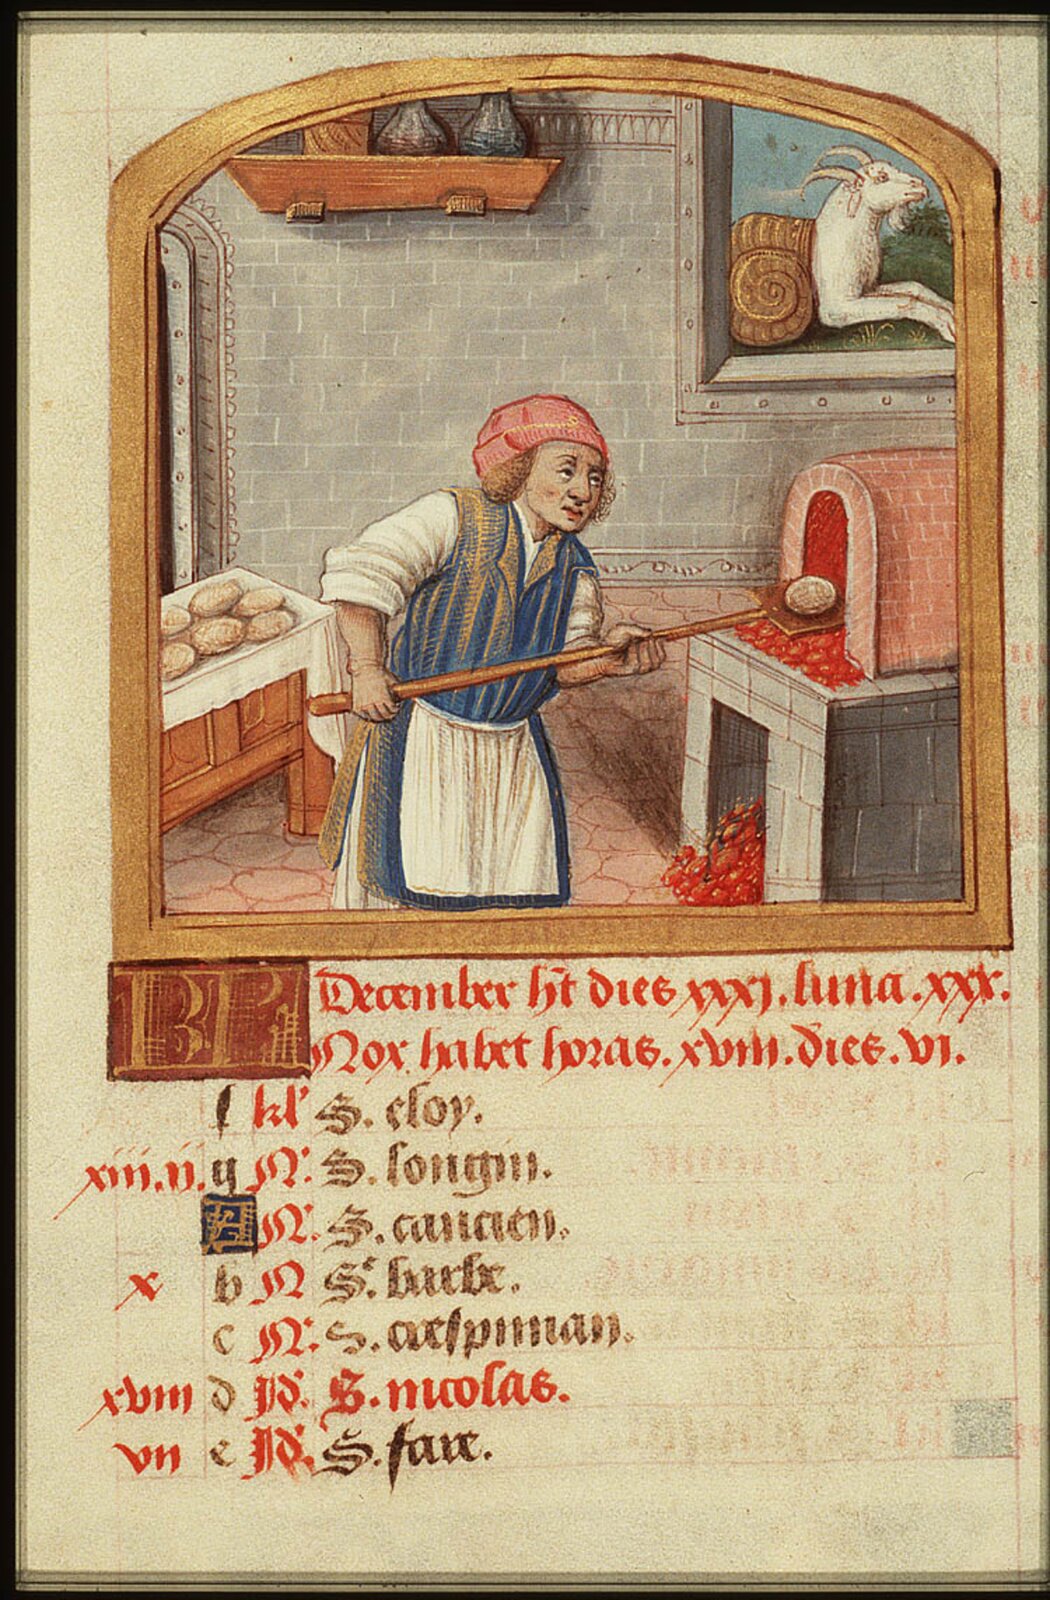 KL December ht dies xxxj. luna. xxx.
Nox habet horas. xviii. dies. vi.
f kl' S. eloy.
xiii. ii. g N. S. longin.
A N. S. cancien.
x b N Sᵉ. barbe.
c N. S. crespinian.
xviii d Id. S. nicolas.
vii e Id. S. fare.